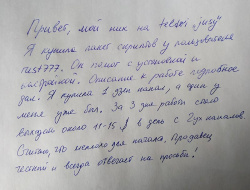 Привет, мой ник на
Я купила пакет скриптов у пользователя
rust777. Он помог с установкой и
настройкой. Описание к работе подробное
дал. Я купила 1 дзен канал, а один у
меня уже был. За 3 дня работы стало
выходить около 11-15 $ в день с 2ух каналов.
Считаю, что неплохо для начала. Продавец
честный и всегда отвечает на просьбы!